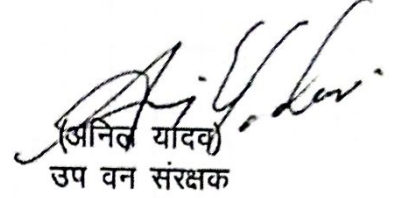 (अनिल यादव)
उप वन संरक्षक